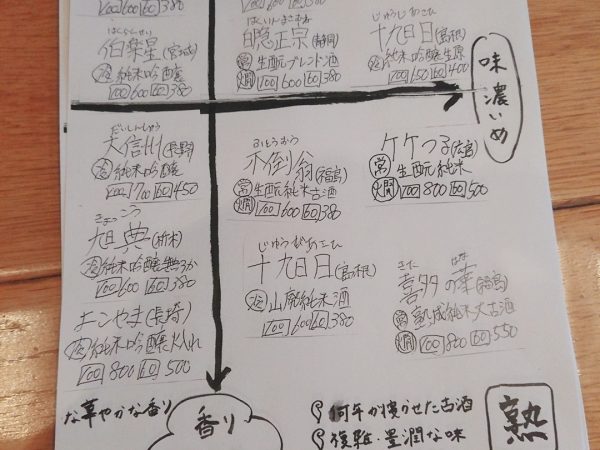 100 600 60 380
100 600 60 380
はくらくせい
伯楽星(宮城)
冷 純米吟醸
100 600 60 380
はくいんまさむね
白隠正宗(静岡)
常 生酛ブレンド酒
燗 100 600 60 380
じゅうじあさひ
十旭日(島根)
純米吟醸生原
100 650 60 400
味濃いめ
だいしんしゅう
大信州(長野)
冷 純米吟醸
100 700 60 450
きょくこう
旭典(栃木)
冷 純米吟醸無ろか
100 600 60 380
(長崎)
冷 純米吟醸火入れ
100 800 60 500
不倒翁(福島)
常 生酛純米古酒
燗 100 600 60 380
十旭日(島根)
山廃純米酒
100 600 60 380
(広島)
常 生酛純米
燗 100 800 60 500
きた はな
喜多の華(福島)
常 熟成純米大古酒
燗 100 800 60 550
な華やかな香り
香り
何年か寝かせた古酒
複雑・豊潤な味
熟